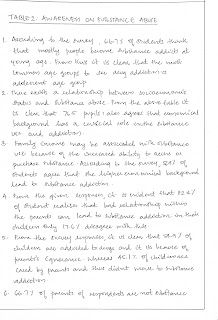 TABLE 2: AWARENESS ON SUBSTANCE ABUSE
1. According to the survey, 66.7% of students think
that mostly people become substance addicts at
young age. From this it is clear that the most
common age groups to see drug addiction is
adolescent age group
2. There exists a relationship between socioeconomic
status and substance abuse. From the above table it
is clear that 76.5 pupils also agree that economical
background has a crucial role in the substance
use and addiction.
3. Family income may be associated with substance
use because of the increased ability to access or
purchase substance. According to the survey, of
students agree that the higher economical background
lead to substance addiction.
4. From the given responses, it is evident that 82.4%
of student realise that bad relationship within
the parents can lead to substance addiction in their
children. Only 17.6% disagree with this.
5. From the survey responses, it is clear that 54.9% of
children are addicted to drugs and it is because of
parent's ignorance whereas 45.1% of children are
cared by parents and this didn't lead to substance
addiction.
6. 66.7% of parents of respondents are not substance